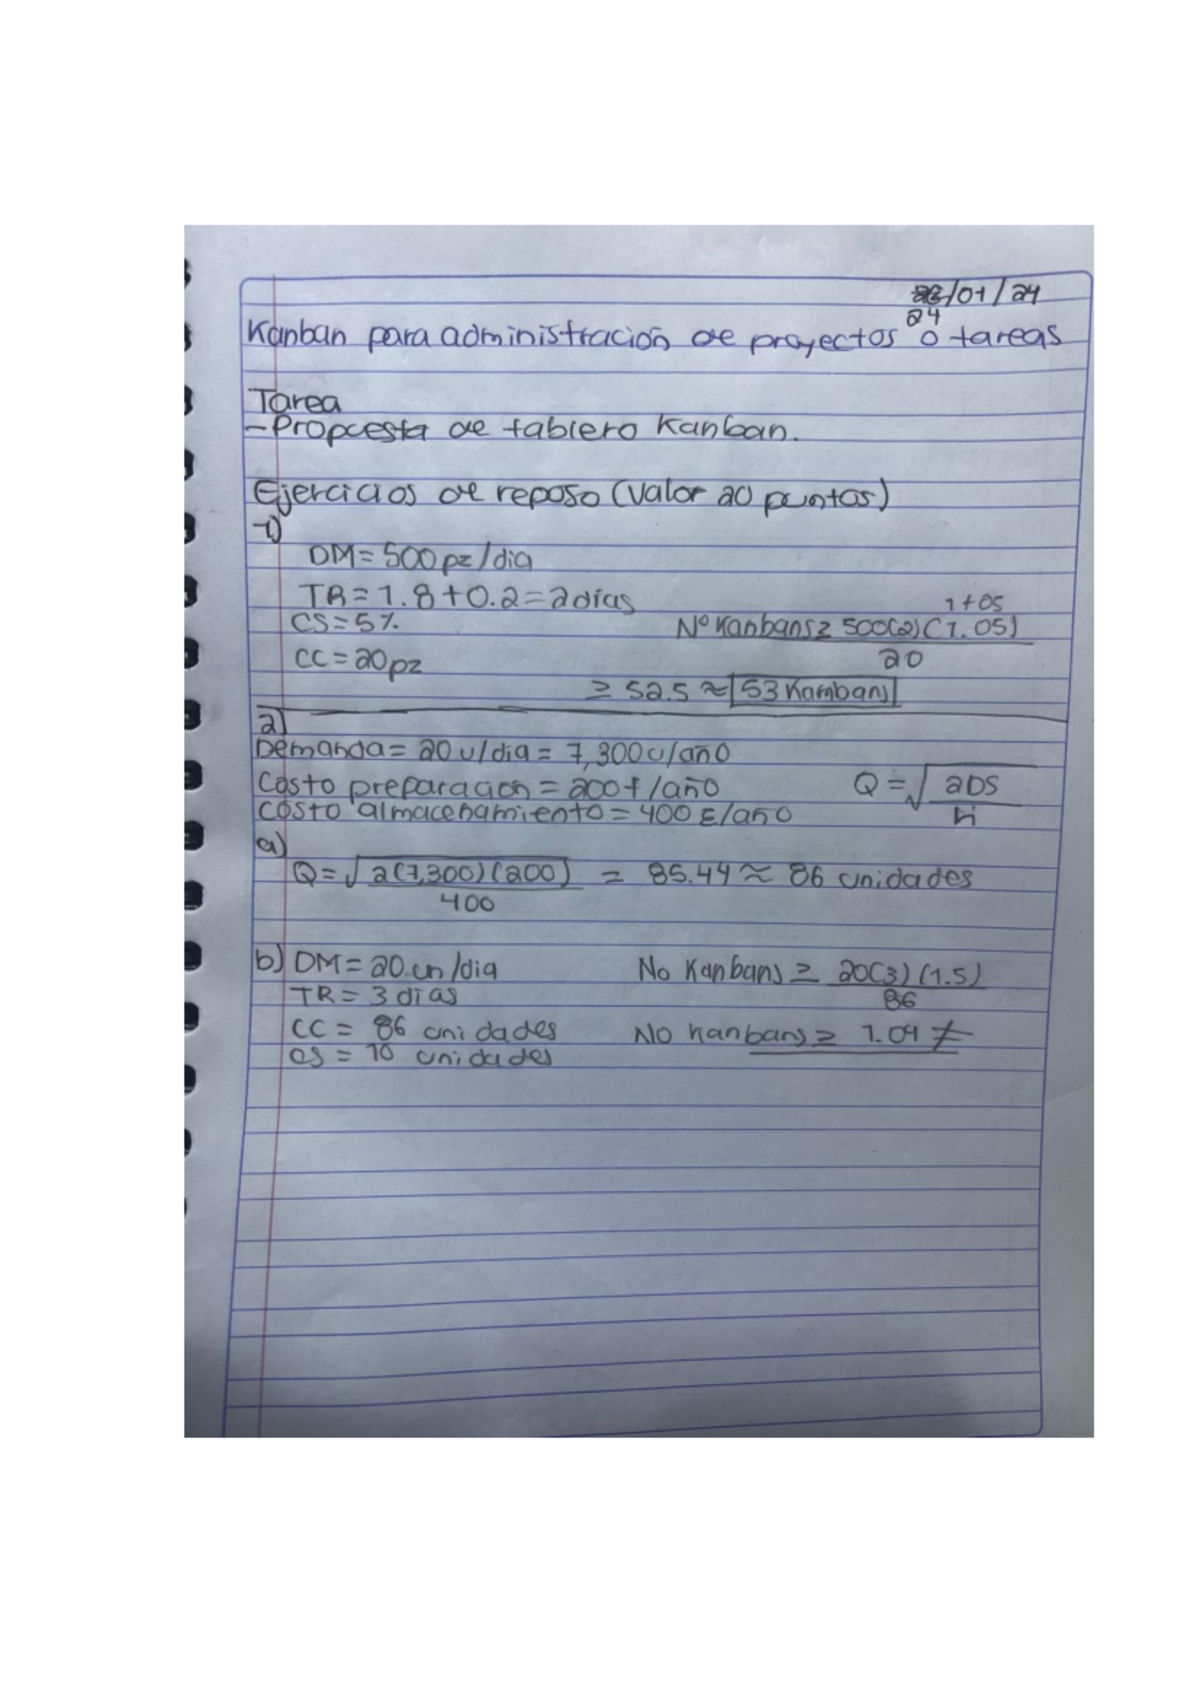 /01/24
24
Kanban para administración de proyectos o tareas
Tarea
-Propuesta de tablero Kanban.
Ejercicios de reposo (valor 20 puntos)
1)
DM = 500 pz/dia
TR = 1.8 + 0.2 = 2 días
1 + 05
CS = 5%
N° Kanbans ≥ 500(2)(1.05)
CC = 20 pz
20
≥ 52.5 ≈ 53 Kambans
2)
Demanda = 20 u/dia = 7,300 u/año
Costo preparacion = 200 £/año
Q = √ 2DS
Costo almacenamiento = 400 £/año
H
a)
Q = √ 2(7,300)(200) = 85.44 ≈ 86 unidades
400
b) DM = 20 un/dia
No Kanbans ≥ 20(3)(1.5)
TR = 3 dias
86
CC = 86 unidades
No kanbans ≥ 1.04
= 10 unidades